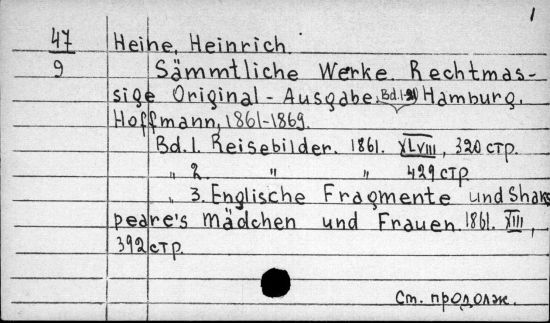 1
47 Heine, Heinrich.
9 Sämmtliche Werke. Rechtmas-
sige Original-Ausgabe. Bd.1-21 Hamburg,
Hoffmann, 1861-1869.
Bd.1. Reisebilder. 1861. XLVIII, 320 стр.
" 2. " " 429 стр.
" 3. Englische Fragmente und Shaks
peare's Mädchen und Frauen. 1861. XIII,
392 стр.
См. продолж.